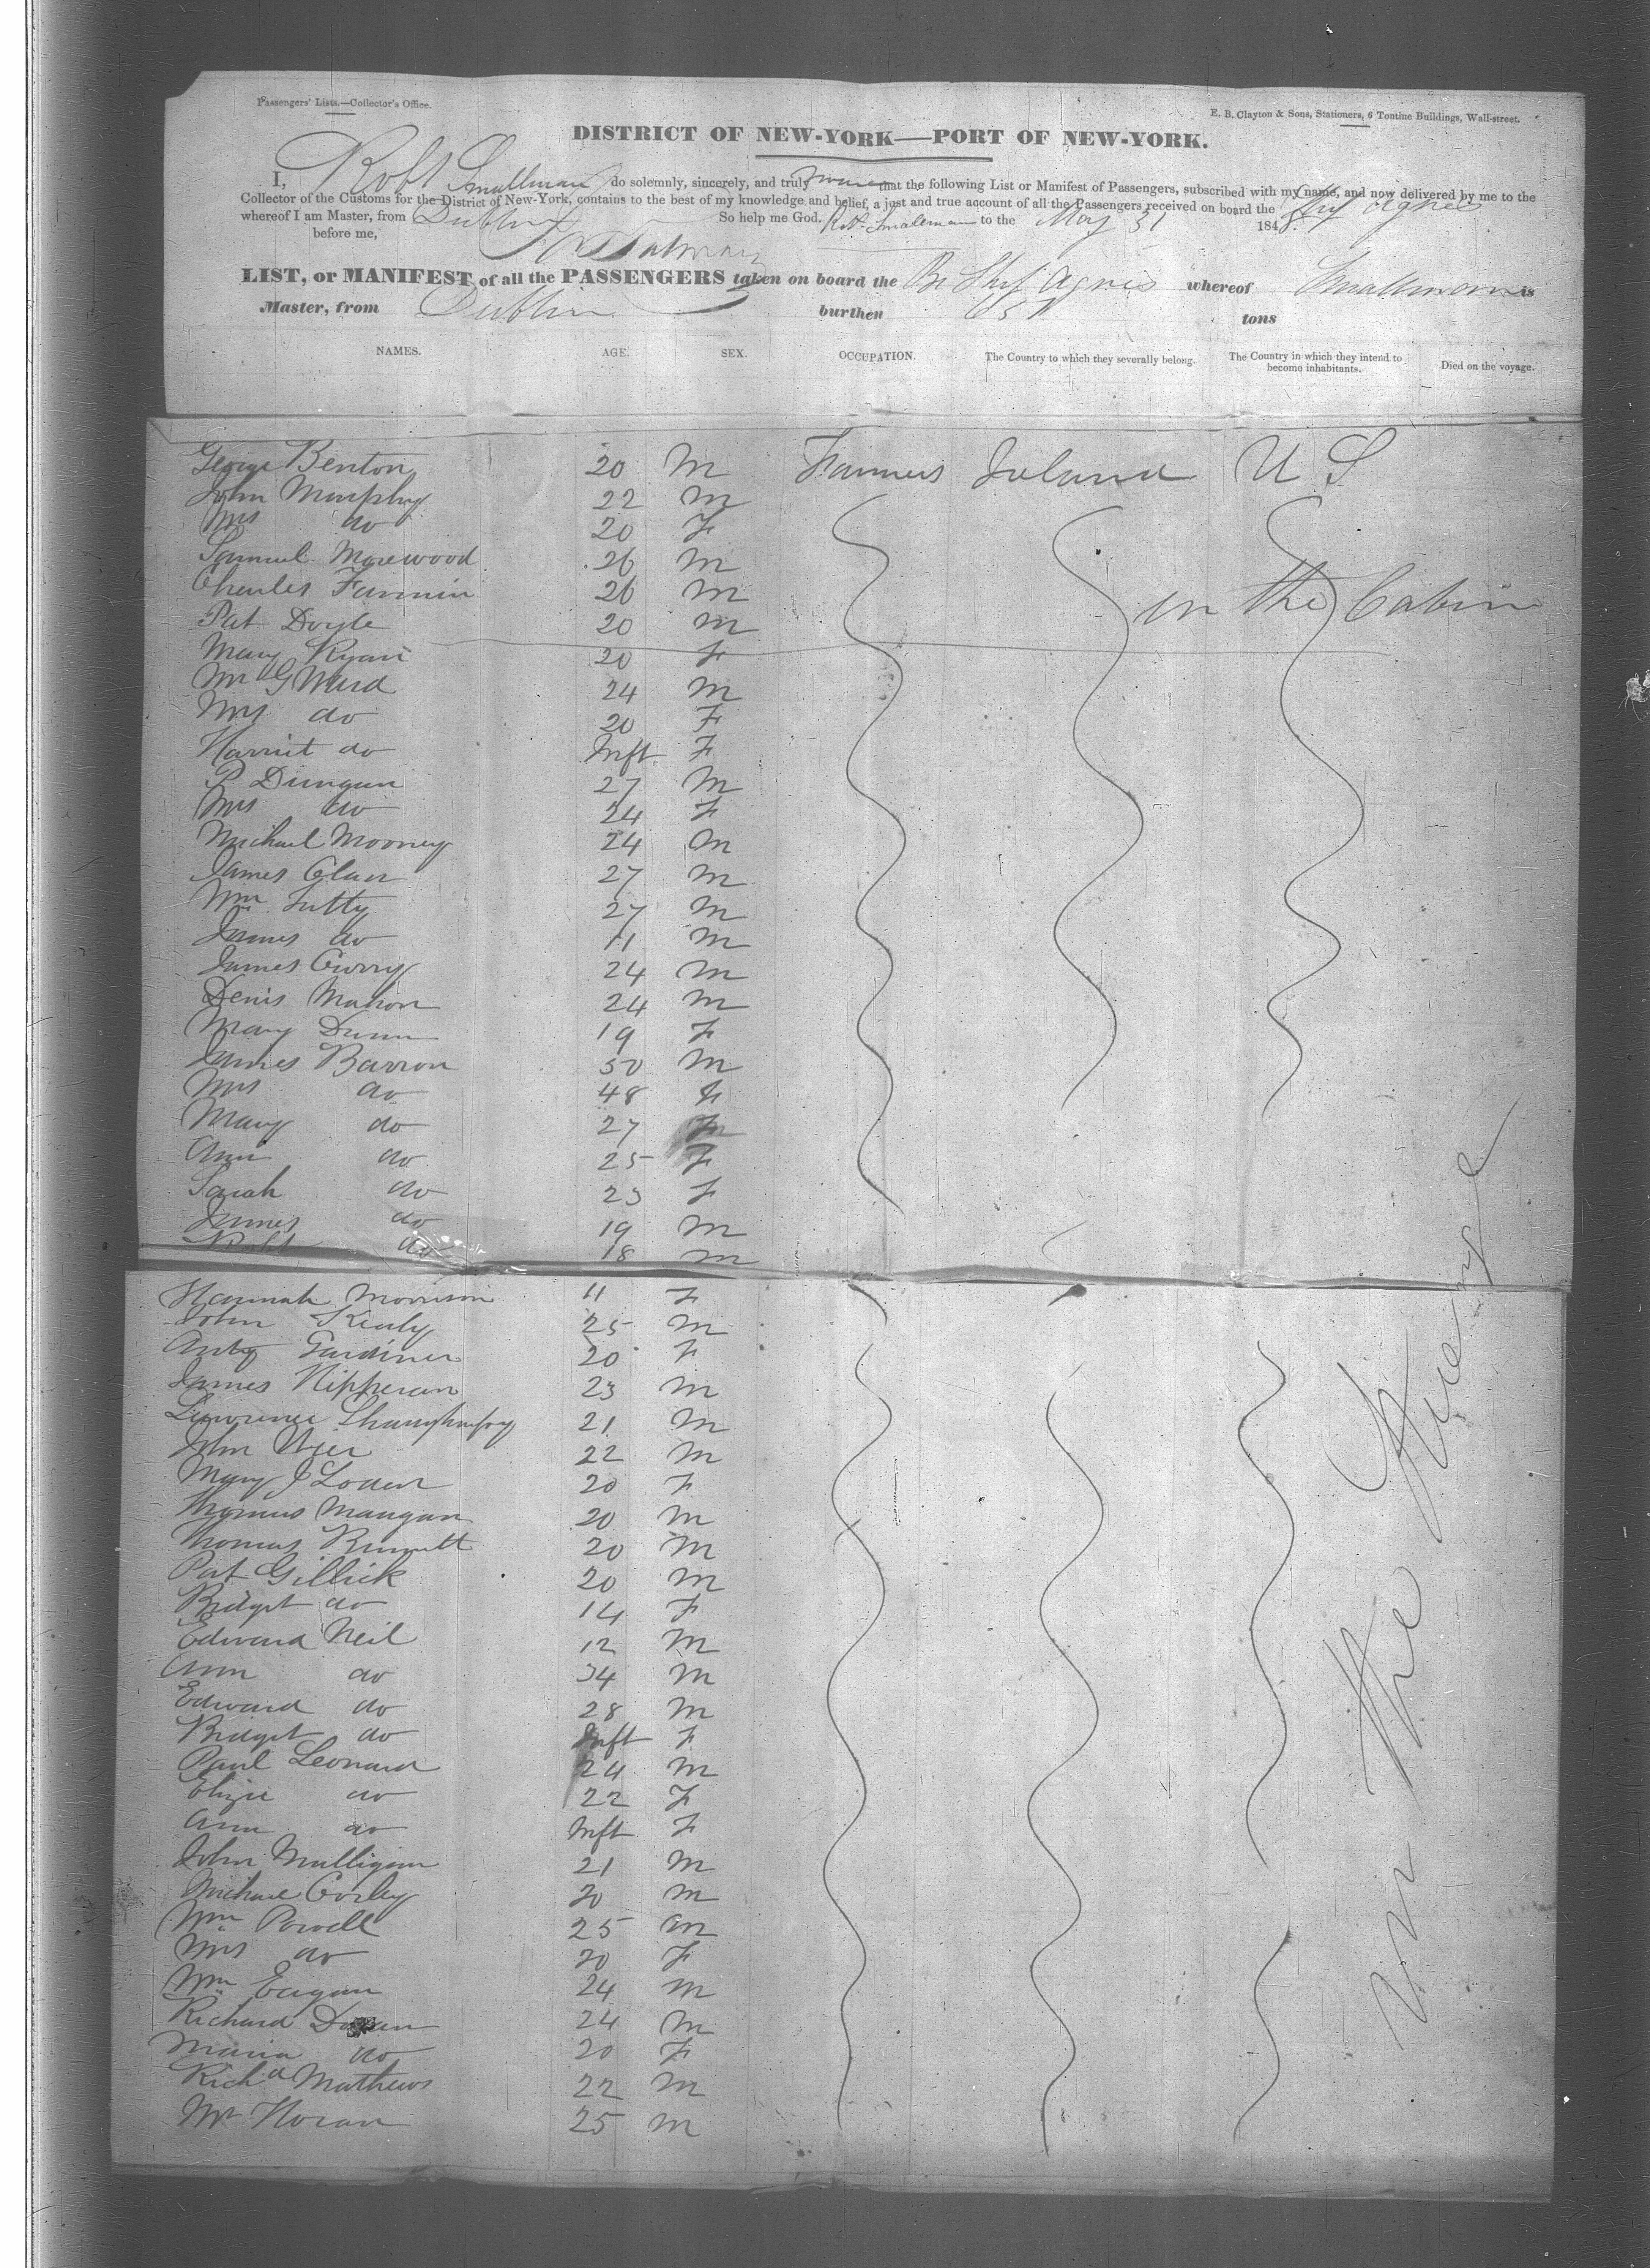 Passengers' Lists.—Collector's Office.
E. B. Clayton & Sons, Stationers, 6 Tontine Buildings, Wall-street.
DISTRICT OF NEW-YORK—PORT OF NEW-YORK.
I, Robt Smallman do solemnly, sincerely, and truly swear that the following List or Manifest of Passengers, subscribed with my name, and now delivered by me to the
Collector of the Customs for the District of New-York, contains to the best of my knowledge and belief, a just and true account of all the Passengers received on board the Ship Agnes
whereof I am Master, from Dublin So help me God. Robt Smallman to the May 31 184
before me,
LIST, or MANIFEST of all the PASSENGERS taken on board the Br Ship Agnes whereof Smallman is
Master, from Dublin burthen tons
NAMES. AGE. SEX. OCCUPATION. The Country to which they severally belong. The Country in which they intend to become inhabitants. Died on the voyage.
George Benton 20 M Farmers Ireland U S
John Murphy 22 M
Mrs do 20 F
Samuel Morewood 26 M
Charles Fannin 26 M in the Cabin
Pat Doyle 20 M
Mary Ryan 20 F
Mr G Ward 24 M
Mrs do 20 F
Harriet do Inft F
P Dungan 27 M
Mrs do 24 F
Michael Mooney 24 M
James 27 M
Wm 27 M
James do 11 M
James Curry 24 M
Denis Mahon 24 M
Mary Dunn 19 F
James Barron 50 M
Mrs do 48 F
Mary do 27 F
Ann do 25 F
Sarah do 23 F
James do 19 M
Robt do 18 M
Hannah Morrison 11 F
John Kealy 25 M
Gardiner 20 F
James Hipperan 23 M
Lawrence 21 M
John 22 M
Mary J 20 F
Thomas Mangan 20 M
Thomas 20 M
Pat Gillick 20 M
Bridget do 14 F
Edward Neil 12 M
Ann do 34 M
Edward do 28 M
Bridget do Inft F
Paul Leonard 24 M
Eliza do 22 F
Ann do Inft F
John Mulligan 21 M
Michael Corley 20 M
Wm Powell 25 M
Mrs do 20 F
Wm Eagan 24 M
Richard 24 M
Maria do 20 F
Richd Mathews 22 M
Mr Horan 25 M
in the Steerage